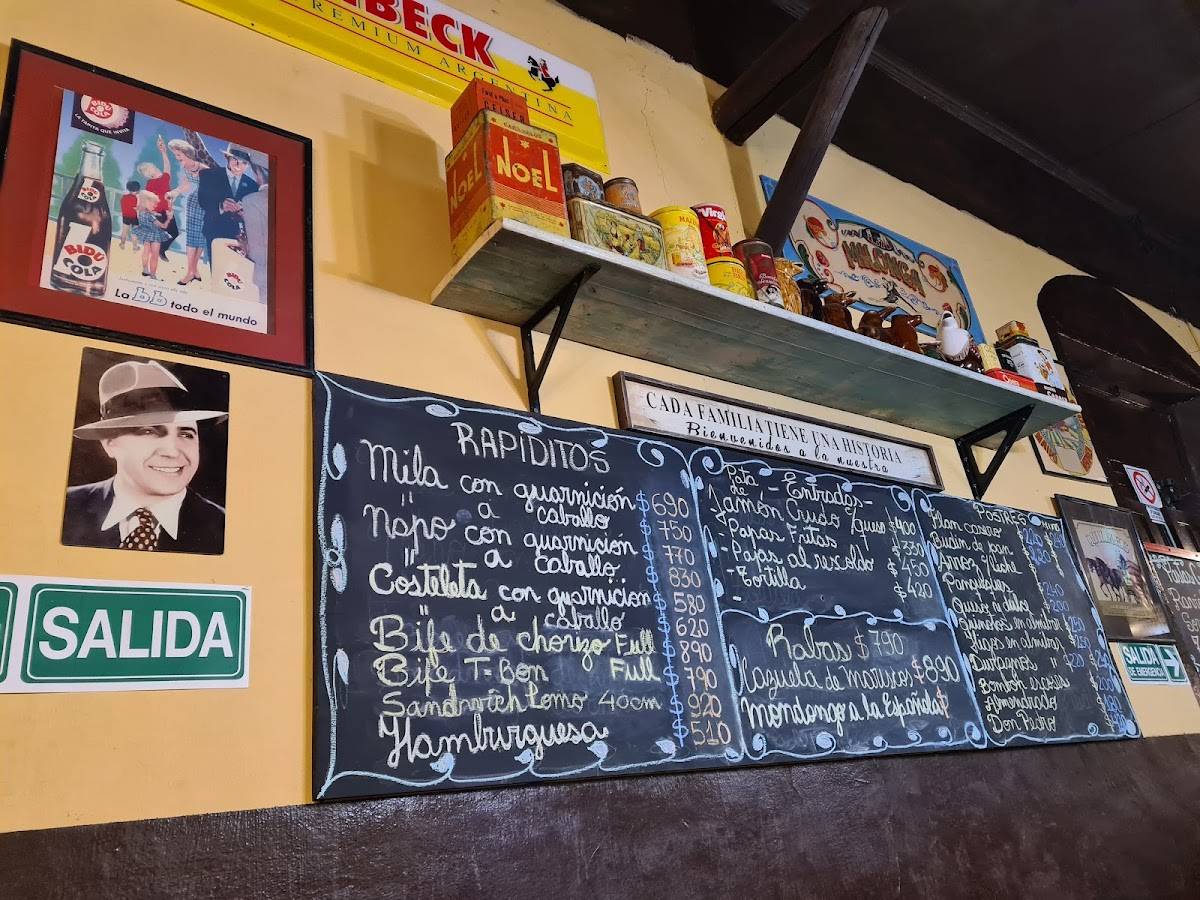 BECK
PREMIUM ARGENTINA
BIDU
COLA
LA TAPITA QUE INVITA
BIDU
COLA
La bb todo el mundo
NOEL
NOEL
MILONGA
CADA FAMILIA TIENE UNA HISTORIA
Bienvenidos a la nuestra
SALIDA
RAPIDITOS
Mila con guarnición $690
" a caballo $750
Napo con guarnición $770
" a caballo $830
Costeleta con guarnicion $580
" a caballo $620
Bife de chorizo Full $890
Bife T-Bon Full $790
Sandwich Lomo 40cm $920
Hamburguesa $510
-Entradas-
Pata de
Jamón Crudo c/queso $400
-Papas Fritas $330
-Papas al rescoldo $450
-Tortilla $420
Rabas $790
Cazuela de mariscos $890
Mondongo a la Española $
POSTRES
Flan casero
Budin de pan
Arroz c/leche
Panqueques
Queso y dulce
Quinotos en almibar
Higos en almibar
Duraznos
Bombon escoses
Almendrado
Don Pedro
SALIDA
DE EMERGENCIA